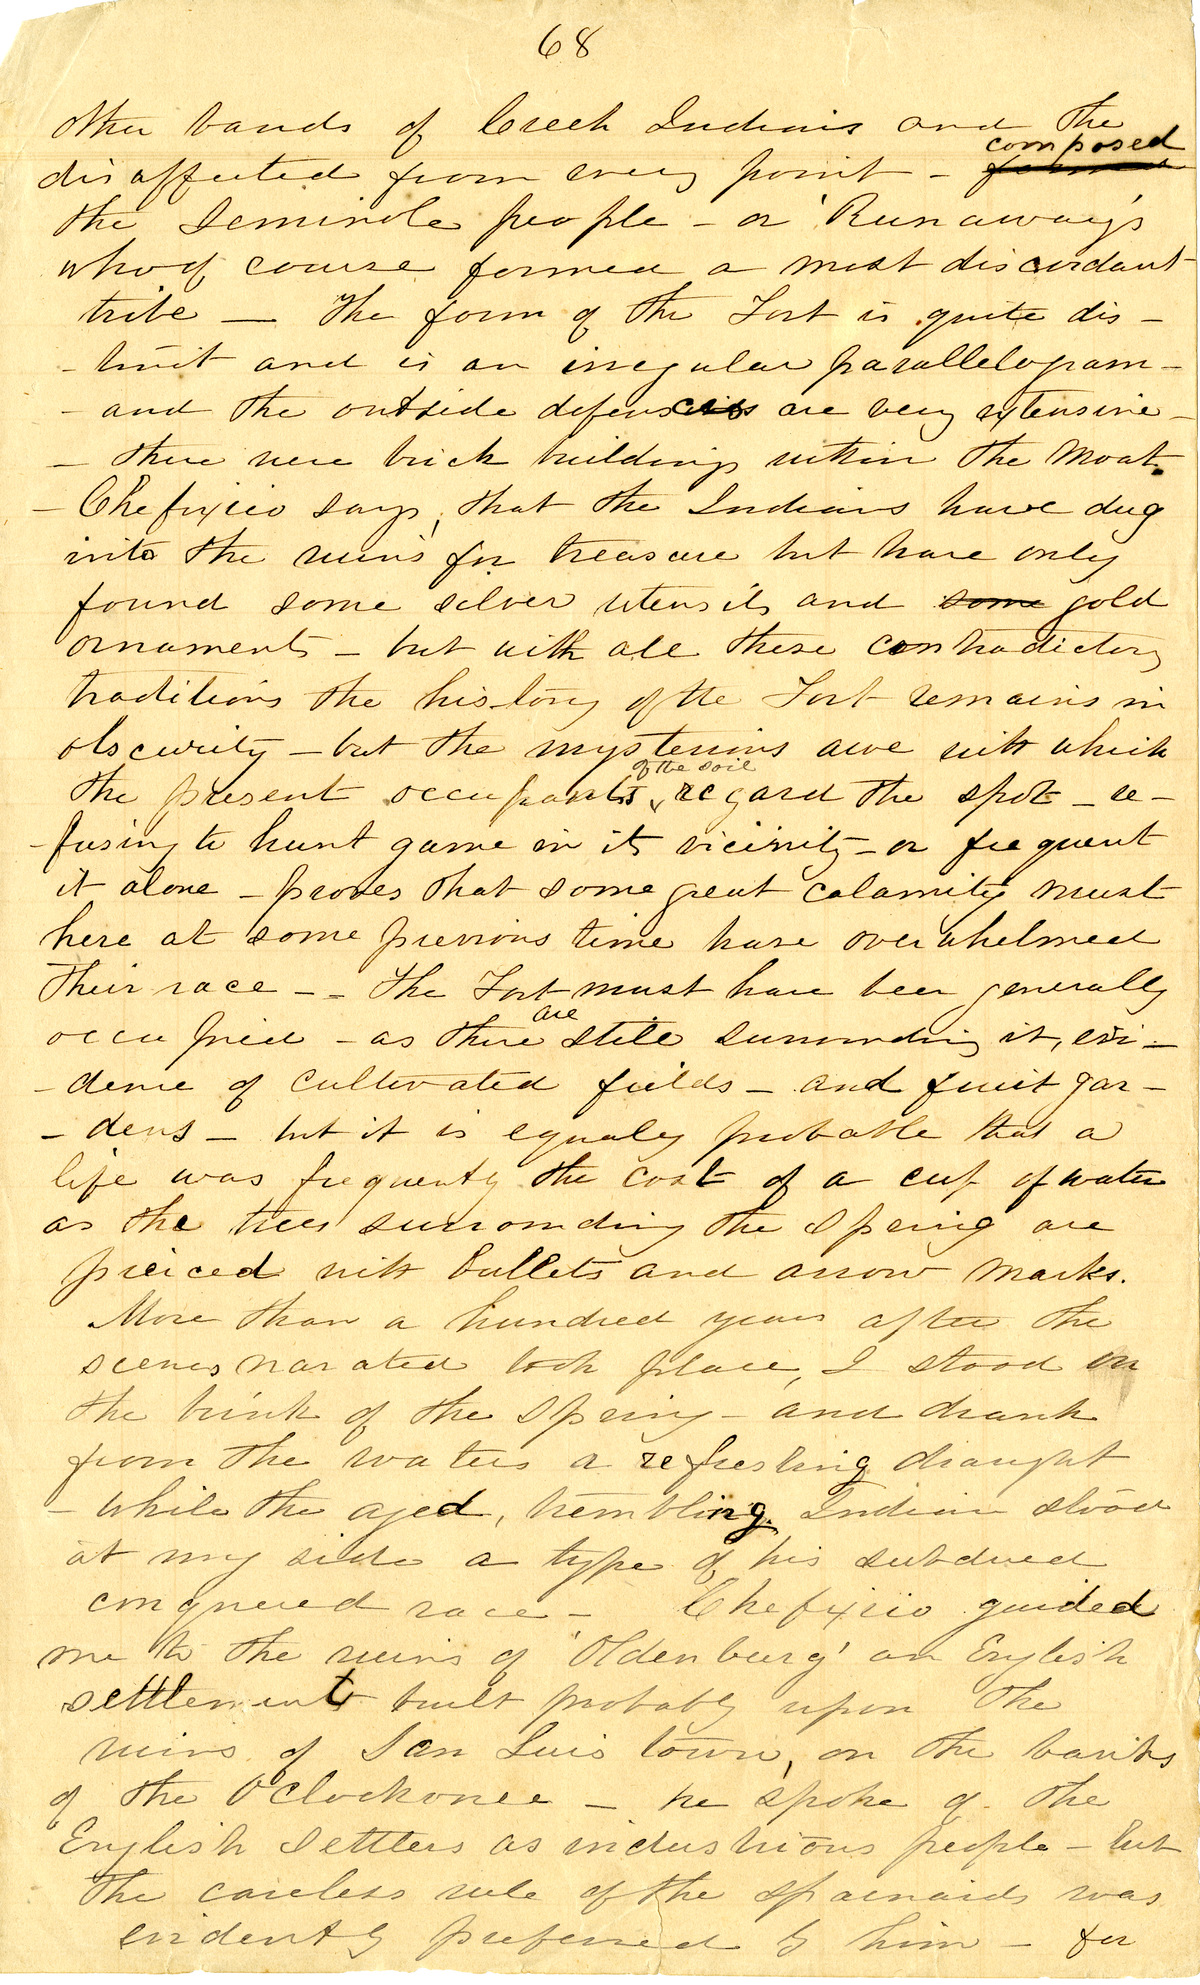 68
other bands of Creek Indians and the
composed
disaffected from every point - formed
the Seminole people - or 'Runaways
who of course formed a most discordant
tribe — The form of the Fort is quite dis -
- tinct and is an irregular parallelogram -
- and the outside defences are very extensive -
- there were brick buildings within the Moat.
- Chefixico says, that the Indians have dug
into the ruins for treasure but have only
found some silver utensils and some gold
ornaments - but with all these contradictory
traditions the history of the Fort remains in
obscurity - but the mysterious awe with which
of the soil
the present occupants regard the spot - re -
- fusing to hunt game in its vicinity - or frequent
it alone - proves that some great calamity must
here at some previous time have overwhelmed
their race - - The Fort must have been generally
are
occupied - as there still surrounding it, evi -
- dence of cultivated fields - and fruit gar -
- dens - but it is equaly probable that a
life was frequently the cost of a cup of water
as the trees surrounding the Spring are
pierced with bullets and arrow marks.
More than a hundred years after the
scenes narated took place, I stood on
the brink of the Spring - and drank
from the waters a refreshing draught
- while the aged, trembling Indian stood
at my side a type of his subdued
conquered race - Chefixico guided
me to the ruins of 'Oldenburg' an English
settlement built probably upon the
ruins of San Luis town, on the banks
of the O'Clockonee - he spoke of the
English Settlers as industrious people - but
the careless rule of the Spainards was
evidently preferred by him - for